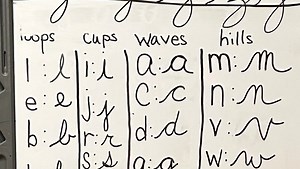 loops cups waves hills
l : l i : i a : a m : m
e : e j : j c : c n : n
b : b r : r d : d v : v
s : s a : a w : w